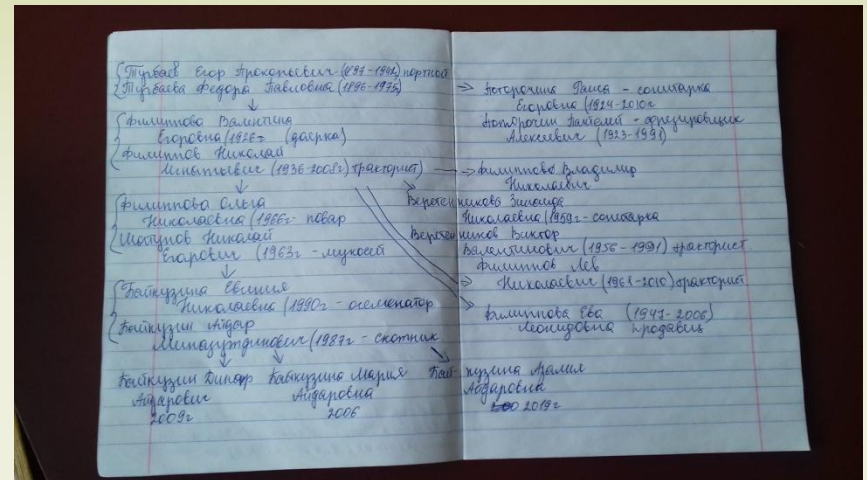 Турбаев Егор Прокопьевич (1897-1942) портной
Турбаева Федора Павловна (1896-1975)
Филиппова Валентина
Егоровна (1926г (доярка)
Филиппов Николай
Игнатьевич (1936-2008г) тракторист)
Филиппова Ольга
Николаевна (1966г- повар
Шатунов Николай
Егарович (1963г - мукосей
Байкузина Евгения
Николаевна (1990г - осеменатор
Байкузин Айдар
Миназутдинович (1987г - скотник
Байкузин Динар
Айдарович
2009г
Байкузина Мария
Айдаровна
2006
Байкузина Азалия
Айдаровна
2019г
Раиса - санитарка
Егоровна (1924-2010г
Пантелей - фрезировщик
Алексеевич (1923-1991)
Филиппов Владимир
Николаевич
Веретенникова Зинаида
Николаевна (1959г - санитарка
Веретенников Виктор
Валентинович (1956-1991) тракторист
Филиппов Лев
Николаевич (1961-2010) тракторист
Филиппова Ева (1947-2006)
Леонидовна продавец